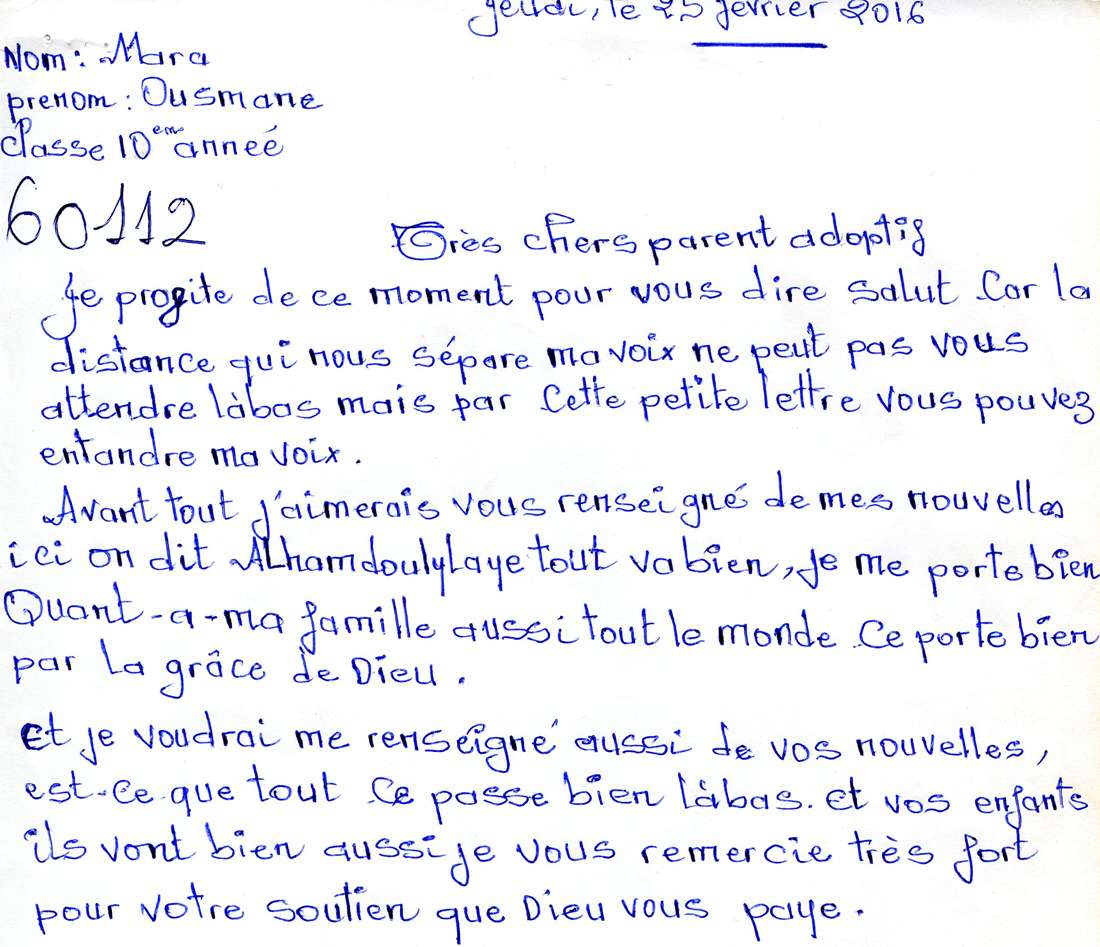 jeudi, le 25 fevrier 2016
Nom: Mara
prenom: Ousmane
classe 10em anneé
60112
Très chers parent adoptif
Je profite de ce moment pour vous dire salut Car la
distance qui nous sépare ma voix ne peut pas vous
attendre làbas mais par Cette petite lettre vous pouvez
entandre ma voix.
Avant tout j'aimerais vous renseigné de mes nouvelles
ici on dit ALhamdoulyLaye tout va bien, Je me porte bien
Quant-a-ma famille aussi tout le monde Ce porte bien
par La grâce de Dieu.
Et je voudrai me renseigné aussi de vos nouvelles,
est-Ce que tout Ce passe bien Làbas. Et vos enfants
ils vont bien aussi je vous remercie très fort
pour votre soutien que Dieu vous paye.